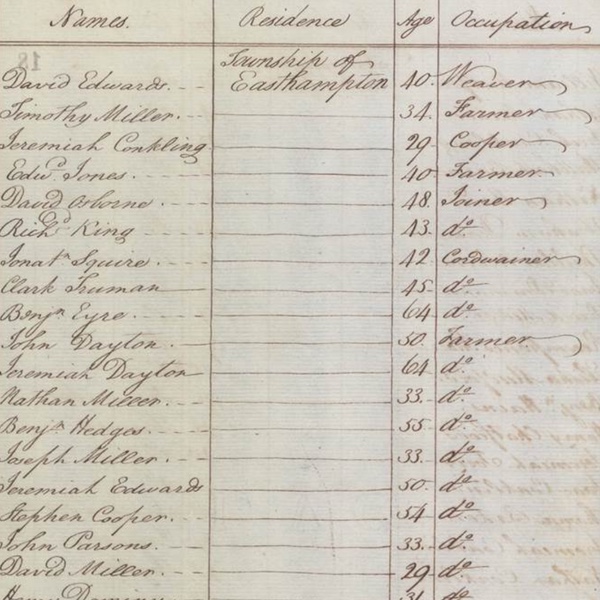 Names. Residence Age Occupation
Township of
David Edwards. Easthampton 40. Weaver
Timothy Miller. 34. Farmer
Jeremiah Conkling 29. Cooper
Edwd. Jones. 40 Farmer
David Osborne. 48. Joiner
Richd. King 43. do.
Jonatn. Squire. 42. Cordwainer
Clark Truman 45. do.
Benjn. Eyre. 64 do.
John Dayton. 50. Farmer
Jeremiah Dayton 64 do.
Nathan Miller. 33. do.
Benjn. Hedges. 55 do.
Joseph Miller. 33. do.
Jeremiah Edwards 50. do.
Stephen Cooper. 54 do.
John Parsons. 33. do.
David Miller. 29 do.
Henry Dominy 31. do.